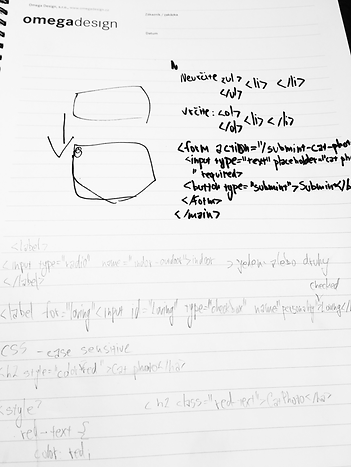 omegadesign
Neurčité <ul> <li> </li>
</ul>
určité: <ol> <li> </li>
</ol>
<form action="/submint-cat-pho
<input type="text" placeholder="cat pho
" required>
<button type="submint">Submint</b
</form>
</main>
<label>
<input type="radio" name="indoor-outdoor">indoor
</label>
checked
<label for="loving"<input id="loving" type="checkbox" name="personality">Loving</
CSS - case sensitive
<h2 style="color:red">Cat photo</h2>
<style>
<h2 class="red-text">CatPhoto</h2>
red-text {
color: red;